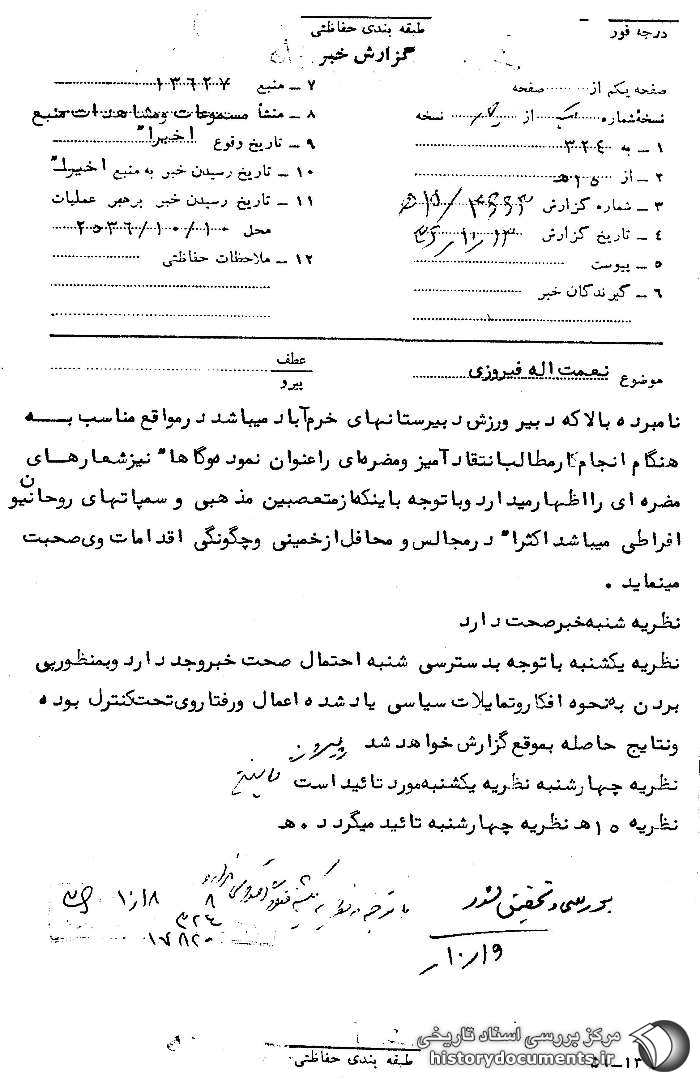 درجه فور
طبقه بندی حفاظتی
گزارش خبر
صفحه یکم از ........ صفحه
نسخهٔ شماره یک از نسخه
۱ ــ به ۳۲۴
۲ ــ از ۱۵هـ
۳ ــ شماره گزارش
۴ ــ تاریخ گزارش
۵ ــ پیوست
۶ ــ گیرندگان خبر
۷ ــ منبع ۱۳۶۲۷
۸ ــ منشأ مسموعات و مشاهدات منبع
۹ ــ تاریخ وقوع اخیرا"
۱۰ ــ تاریخ رسیدن خبر به منبع اخیرا"
۱۱ ــ تاریخ رسیدن خبر برهبر عملیات
محل ۲۵۳۶/۱۰/۱۰
۱۲ ــ ملاحظات حفاظتی
موضوع نعمت اله فیروزی
عطف
پیرو
نامبرده بالا که دبیر ورزش دبیرستانهای خرم‌آباد میباشد در مواقع مناسب به
هنگام انجام کار مطالب انتقاد آمیز و مضره‌ای را عنوان نموده و گاها" نیز شعارهای
مضره ای را اظهار میدارد و با توجه باینکه از متعصبین مذهبی و سمپاتهای روحانیون
افراطی میباشد اکثرا" در مجالس و محافل از خمینی و چگونگی اقدامات وی صحبت
مینماید .
نظریه شنبه خبر صحت دارد
نظریه یکشنبه با توجه بدسترسی شنبه احتمال صحت خبر وجد دارد و بمنظور پی
بردن به نحوه افکار و تمایلات سیاسی یاد شده اعمال و رفتار وی تحت کنترل بوده
و نتایج حاصله بموقع گزارش خواهد شد پیروز
نظریه چهارشنبه نظریه یکشنبه مورد تائید است
نظریه ۱۵هـ نظریه چهارشنبه تائید میگردد . هـ
بررسی و تحقیق شود
۱۰/۹
۱۰/۸
۸
۳۲۴
۱۷۸۲۰
طبقه بندی حفاظتی
مرکز بررسی اسناد تاریخی
historydocuments.ir